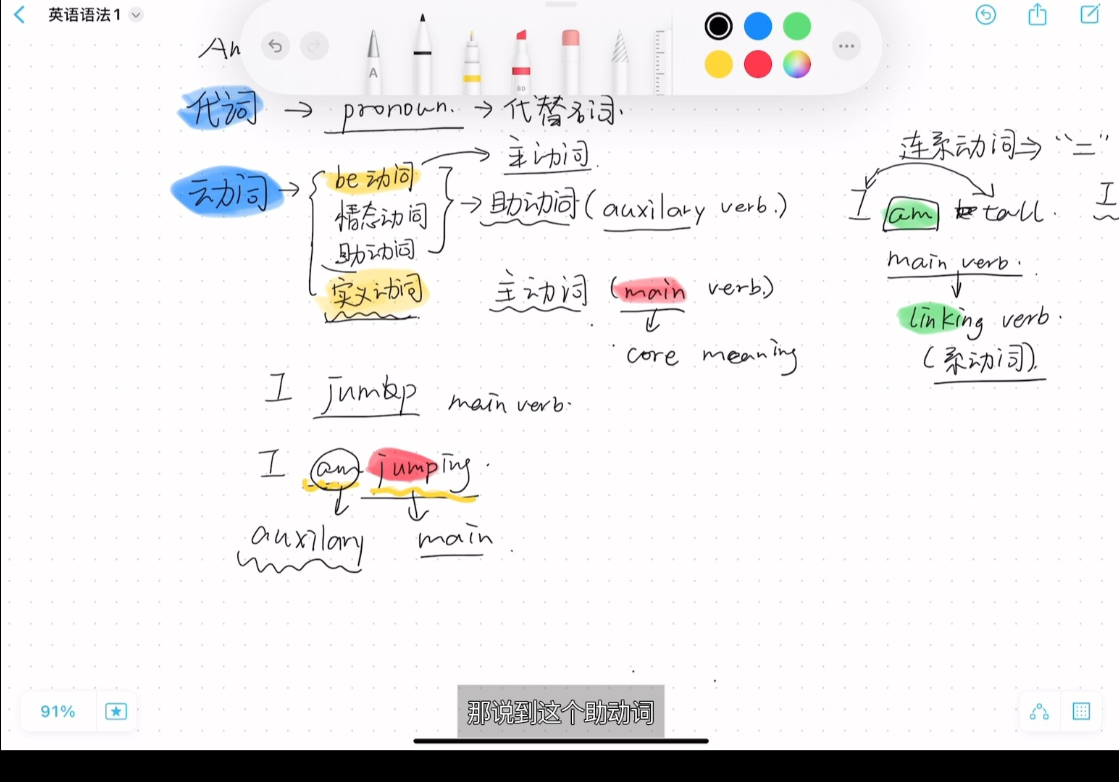 英语语法1
An
A
80
代词 → pronoun. → 代替名词.
动词 → be动词 → 主动词
情态动词 → 助动词 (auxilary verb.)
助动词
实义动词 主动词 (main verb.)
core meaning
I jump main verb.
I am jumping.
auxilary main
连系动词 ⇒ "="
I am tall. I
main verb.
linking verb.
(系动词).
91%
那说到这个助动词